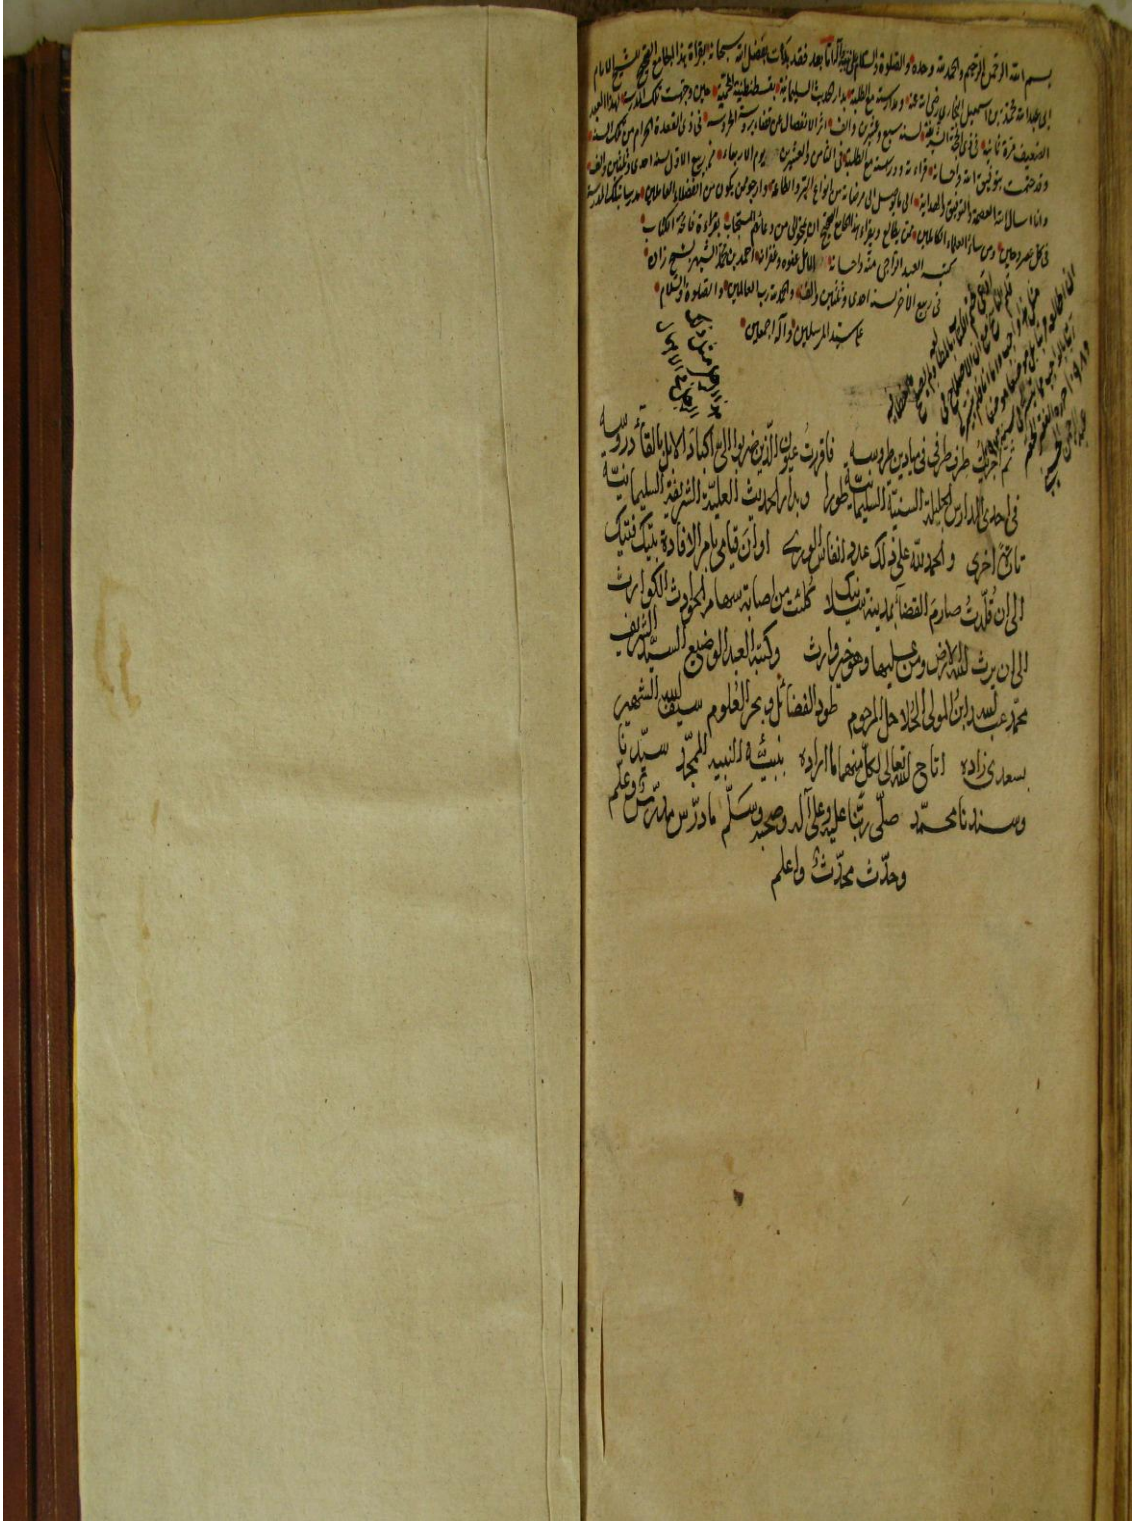 بسم الله الرحمن الرحيم والحمد لله وحده والصلوة والسلام على نبيه وآله اما بعد فقد بدأت بفضل الله سبحانه بقراءة هذا الجامع الصحيح للشيخ الامام
ابى عبد الله محمد بن اسمعيل البخارى رضى الله عنه ومدارسته مع الطلبة بدار الحديث السليمانية بقسطنطينية المحمية حين وجهت تلك المدرسة لهذا العبد
الضعيف مرة ثانية فى ذى الحجة الشريفة لسنة سبع وعشرين والف اثر الانفصال عن قضاء بروسة المحروسة فى ذى القعدة الحرام من تلك السنة
وقد ختمت بتوفيق الله واحسانه قراءته ودرسته مع الطلبة فى الثامن والعشرين يوم الاربعاء من ربيع الاول لسنة احدى وثلثين والف
وانا اسأل الله العصمة والتوفيق والهداية الى ما يوصل الى مرضاته من انواع البر والطاعة وارجو ممن يكون من الفضلاء العاملين مدرسا بتلك المدرسة
فى كل عصر وحين ومن سائر العلماء الكاملين ممن يطالع ويقراء هذا الجامع الصحيح ان يجعل لى من دعائهم المستجاب بقراءة فاتحة الكتاب
كتبه العبد الراجى منه واحسانه الامل عفوه وغفرانه احمد بن محمد الشهير بشيخ زاده
فى ربيع الاخر لسنة احدى وثلثين والف والحمد لله رب العالمين والصلوة والسلام
على سيد المرسلين وآله اجمعين
ثم اجريت طرف طرفى فى ميادين طروسه فاقررت عيون الذين ضربوا الى اكباد الابل بالقاء دروسه
فى احدى المدارس الجليلة السنية السليمانية طورا وبدار الحديث العلية الشريفة السليمانية
تارة اخرى والحمد لله على ذلك عدد انفاس الورى اوان قيامى بامر الافادة بتيك فتيك
الى ان قلدت صارم القضا بمدينة سلانيك كلئت من اصابة سهام الحوادث الكوارث
الى ان يرث الله الارض ومن عليها وهو خير وارث وكتبه العبد الوضيع السيد الشريف
محمد عبد الله ابن المولى الحلاحل المرحوم طود الفضائل وبحر العلوم سيف الله الشهير
بسعدى زاده اتاح الله تعالى لكل منهما ما اراده بنبيه النبيه الممجد سيدنا
وسندنا محمد صلى ربنا عليه وعلى آله وصحبه وسلم ما درس مدرس وعلم
وحدث محدث واعلم